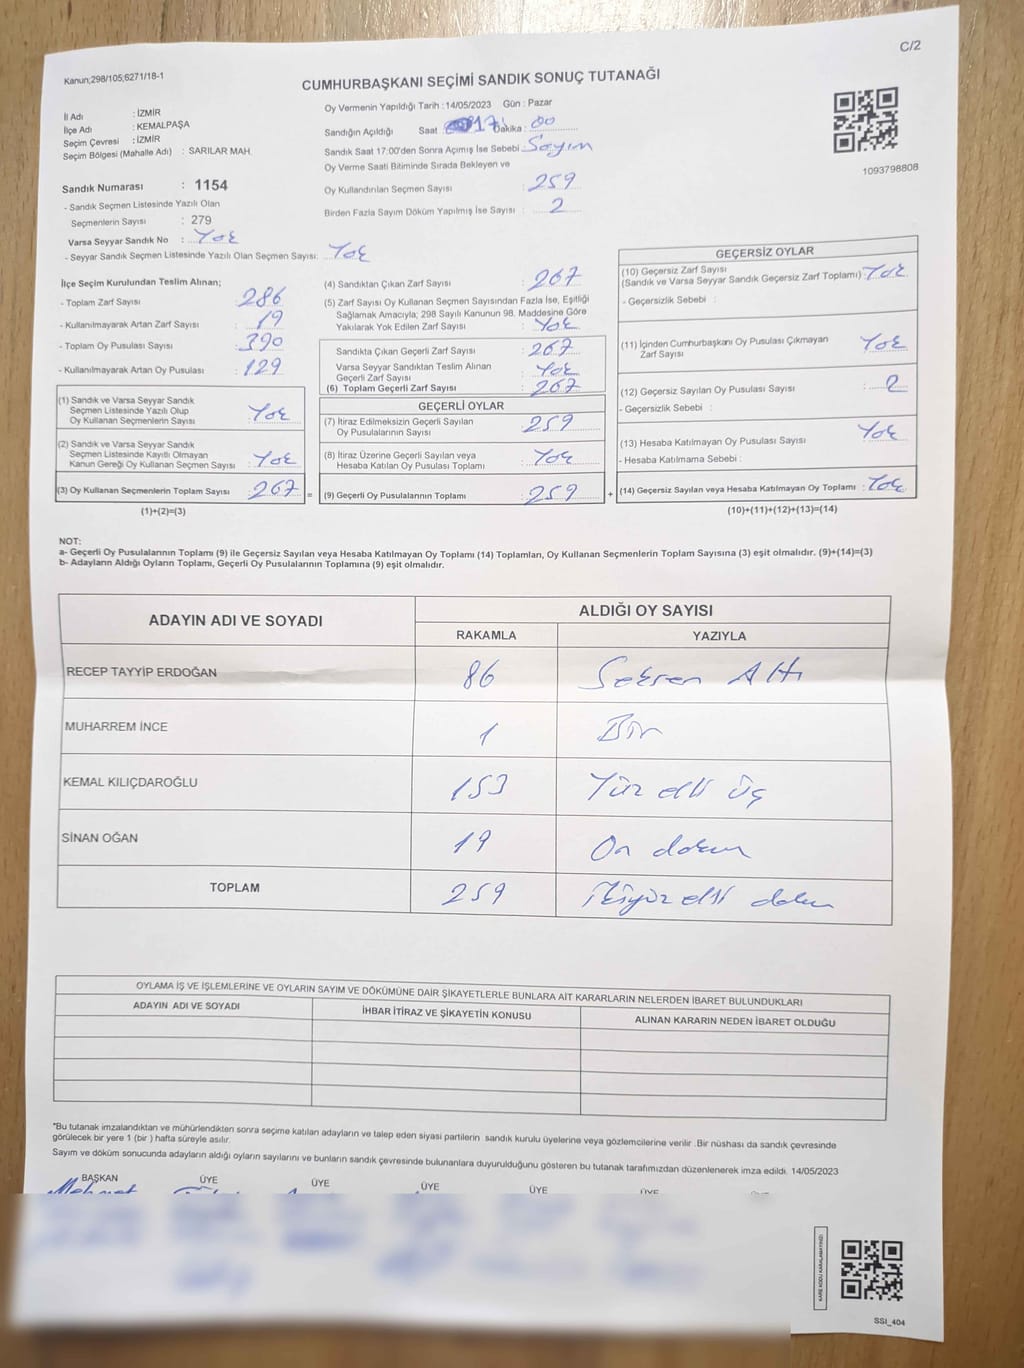 C/2
Kanun;298/105;6271/18-1
CUMHURBAŞKANI SEÇİMİ SANDIK SONUÇ TUTANAĞI
İl Adı : İZMİR
İlçe Adı : KEMALPAŞA
Seçim Çevresi : İZMİR
Seçim Bölgesi (Mahalle Adı) : SARILAR MAH.
Sandık Numarası : 1154
- Sandık Seçmen Listesinde Yazılı Olan
Seçmenlerin Sayısı : 279
Varsa Seyyar Sandık No : Yok
- Seyyar Sandık Seçmen Listesinde Yazılı Olan Seçmen Sayısı: Yok
Oy Vermenin Yapıldığı Tarih : 14/05/2023 Gün : Pazar
Sandığın Açıldığı Saat 17 Dakika : 00
Sandık Saat 17:00'den Sonra Açımış İse Sebebi Sayım
Oy Verme Saati Bitiminde Sırada Bekleyen ve
Oy Kullandırılan Seçmen Sayısı : 259
Birden Fazla Sayım Döküm Yapılmış İse Sayısı : 2
1093798808
İlçe Seçim Kurulundan Teslim Alınan;
- Toplam Zarf Sayısı : 286
- Kullanılmayarak Artan Zarf Sayısı : 19
- Toplam Oy Pusulası Sayısı : 390
- Kullanılmayarak Artan Oy Pusulası : 129
(1) Sandık ve Varsa Seyyar Sandık
Seçmen Listesinde Yazılı Olup
Oy Kullanan Seçmenlerin Sayısı : Yok
(2) Sandık ve Varsa Seyyar Sandık
Seçmen Listesinde Kayıtlı Olmayan
Kanun Gereği Oy Kullanan Seçmen Sayısı : Yok
(3) Oy Kullanan Seçmenlerin Toplam Sayısı : 267 =
(1)+(2)=(3)
(4) Sandıktan Çıkan Zarf Sayısı : 267
(5) Zarf Sayısı Oy Kullanan Seçmen Sayısından Fazla İse, Eşitliği
Sağlamak Amacıyla; 298 Sayılı Kanunun 98. Maddesine Göre
Yakılarak Yok Edilen Zarf Sayısı : Yok
Sandıkta Çıkan Geçerli Zarf Sayısı : 267
Varsa Seyyar Sandıktan Teslim Alınan
Geçerli Zarf Sayısı : Yok
(6) Toplam Geçerli Zarf Sayısı : 267
GEÇERLİ OYLAR
(7) İtiraz Edilmeksizin Geçerli Sayılan
Oy Pusulalarının Sayısı : 259
(8) İtiraz Üzerine Geçerli Sayılan veya
Hesaba Katılan Oy Pusulası Toplamı : Yok
(9) Geçerli Oy Pusulalarının Toplamı : 259 +
GEÇERSİZ OYLAR
(10) Geçersiz Zarf Sayısı
(Sandık ve Varsa Seyyar Sandık Geçersiz Zarf Toplamı) : Yok
- Geçersizlik Sebebi :
(11) İçinden Cumhurbaşkanı Oy Pusulası Çıkmayan
Zarf Sayısı : Yok
(12) Geçersiz Sayılan Oy Pusulası Sayısı : 2
- Geçersizlik Sebebi :
(13) Hesaba Katılmayan Oy Pusulası Sayısı : Yok
- Hesaba Katılmama Sebebi :
(14) Geçersiz Sayılan veya Hesaba Katılmayan Oy Toplamı : Yok
(10)+(11)+(12)+(13)=(14)
NOT:
a- Geçerli Oy Pusulalarının Toplamı (9) ile Geçersiz Sayılan veya Hesaba Katılmayan Oy Toplamı (14) Toplamları, Oy Kullanan Seçmenlerin Toplam Sayısına (3) eşit olmalıdır. (9)+(14)=(3)
b- Adayların Aldığı Oyların Toplamı, Geçerli Oy Pusulalarının Toplamına (9) eşit olmalıdır.
ADAYIN ADI VE SOYADI ALDIĞI OY SAYISI
RAKAMLA YAZIYLA
RECEP TAYYİP ERDOĞAN 86 Seksen Altı
MUHARREM İNCE 1 Bir
KEMAL KILIÇDAROĞLU 153 Yüz elli üç
SİNAN OĞAN 19 On dokuz
TOPLAM 259 İkiyüz elli dokuz
OYLAMA İŞ VE İŞLEMLERİNE VE OYLARIN SAYIM VE DÖKÜMÜNE DAİR ŞİKAYETLERLE BUNLARA AİT KARARLARIN NELERDEN İBARET BULUNDUKLARI
ADAYIN ADI VE SOYADI İHBAR İTİRAZ VE ŞİKAYETİN KONUSU ALINAN KARARIN NEDEN İBARET OLDUĞU
"Bu tutanak imzalandıktan ve mühürlendikten sonra seçime katılan adayların ve talep eden siyasi partilerin sandık kurulu üyelerine veya gözlemcilerine verilir .Bir nüshası da sandık çevresinde
görülecek bir yere 1 (bir ) hafta süreyle asılır.
Sayım ve döküm sonucunda adayların aldığı oyların sayılarını ve bunların sandık çevresinde bulunanlara duyurulduğunu gösteren bu tutanak tarafımızdan düzenlenerek imza edildi. 14/05/2023
BAŞKAN ÜYE ÜYE ÜYE ÜYE ÜYE
Mehmet
KARE KODU KARALAMAYINIZ!
SSI_404